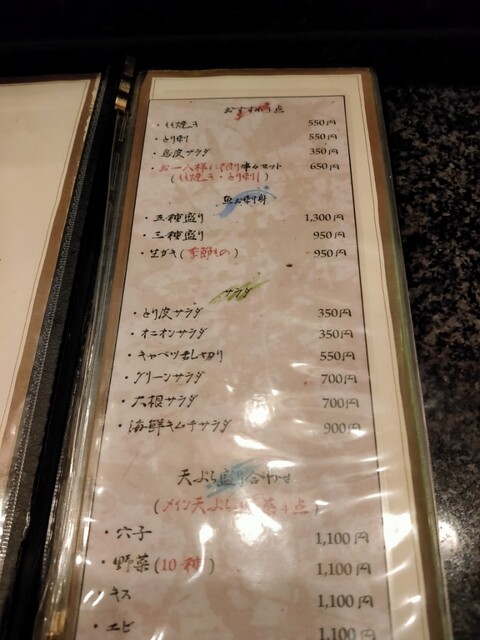 おすすめ4点
・もも焼き 550円
・とり刺し 550円
・鳥波サラダ 350円
・お一人様1ケ限り セット 650円
(もも焼き・とり刺し)
魚お刺身
・五種盛り 1,300円
・三種盛り 950円
・生ガキ(季節もの) 950円
サラダ
・とり波サラダ 350円
・オニオンサラダ 350円
・キャベツざく切り 550円
・グリーンサラダ 700円
・大根サラダ 700円
・海鮮キムチサラダ 900円
天ぷら盛り合わせ
(メイン天ぷら 野菜4点)
・穴子 1,100円
・野菜(10種) 1,100円
キス 1,100円
・エビ 1,100円